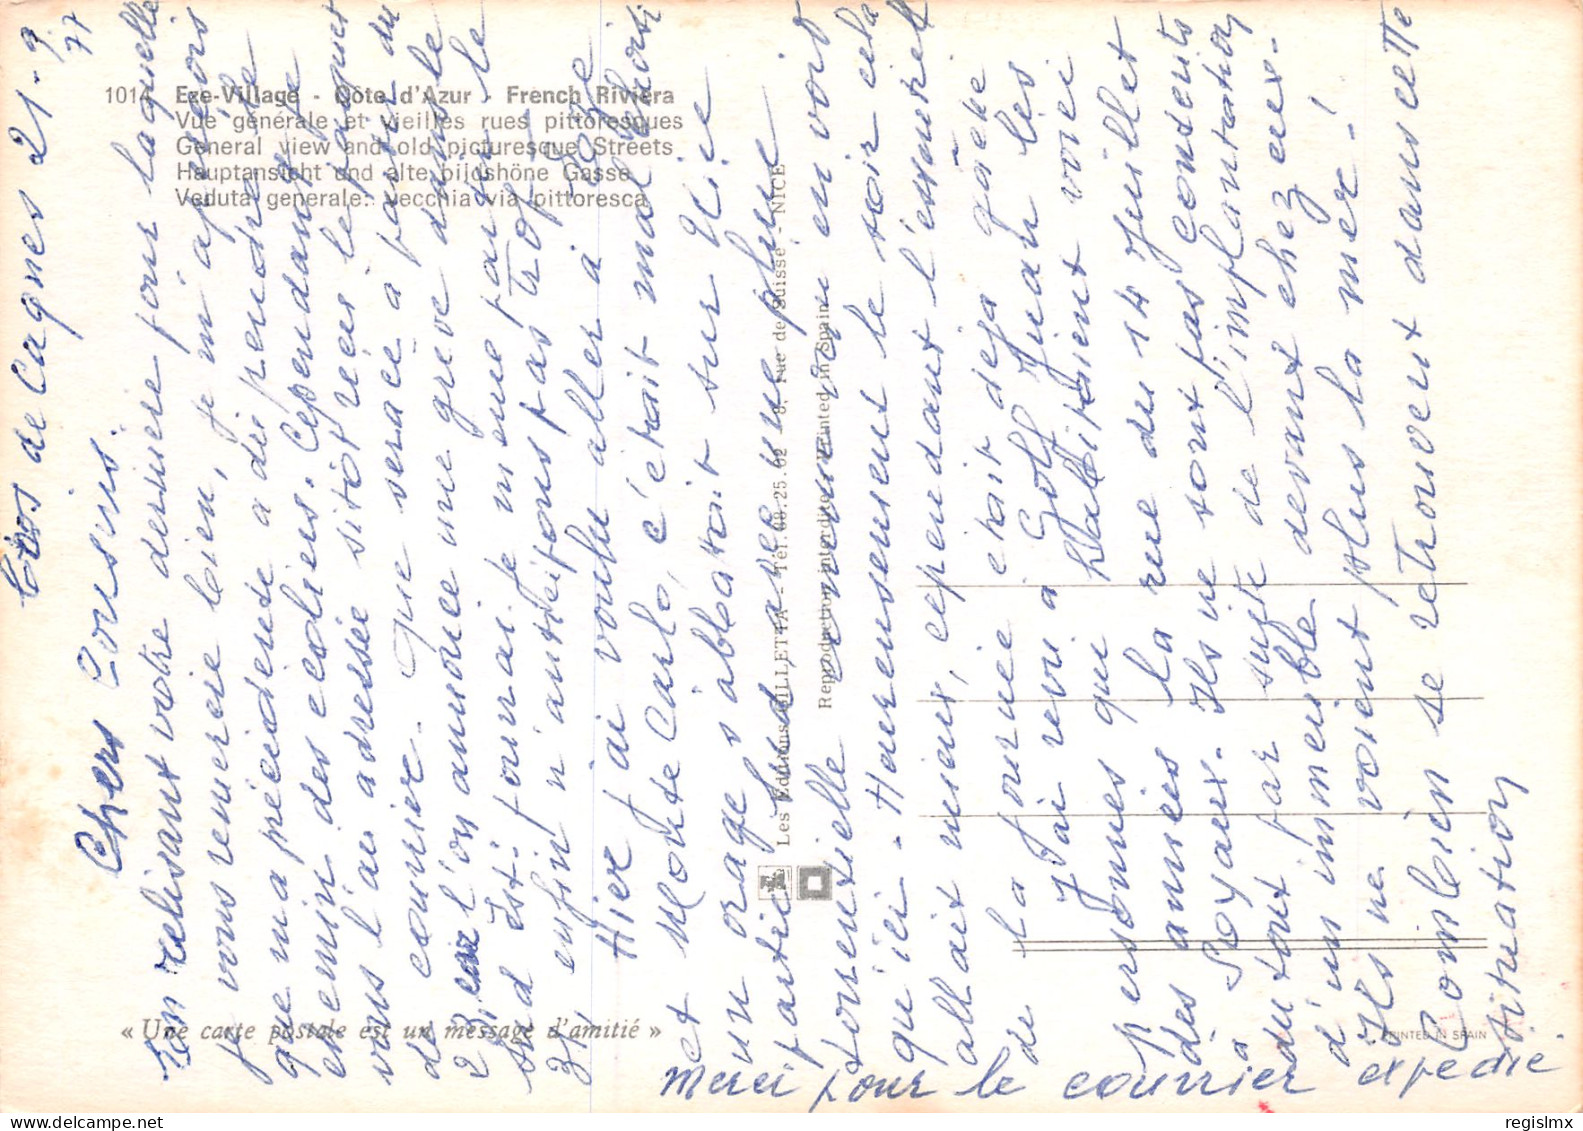 1014 Eze-Village - Côte d'Azur - French Riviera
Vue générale et vieilles rues pittoresques
General view and old picturesque Streets
Hauptansicht und alte bildshöne Gasse
Veduta generale: vecchia via pittoresca
Cros de Cagnes 21-9
77
Chers Cousins.
En relisant votre dernière pour laquelle
je vous remercie bien, je m'aperçois
que ma précédente a dû prendre le
chemin des écoliers. Cependant je
vous l'ai adressée sitôt reçu le paquet
de courrier. Que sera-ce à partir du
23 car l'on annonce une grève dans le
Sud Est. Pourrai-je même partir le
31 enfin n'anticipons pas trop.
Hier j'ai voulu aller à Eze
et Monte Carlo, c'était mal choisi
un orage s'abbattait sur Nice
particulier avec une pluie
torentielle comme on en voit
qu'ici. Heureusement le soir cela
allait mieux, cependant l'essentiel
de la journée était déjà gâché
J'ai revu à Golf Juan les
personnes qui habitaient voici
des années la rue du 14 Juillet
à Soyaux. Ils ne sont pas contents
du tout par suite de l'implantation
d'un immeuble devant chez eux.
Ils ne voient plus la mer!
Combien se retrouvent dans cette
situation
merci pour le courrier expédié
Les Editions GILLETTA - Tél. 88.25.62 8, rue de Suisse - NICE
Reproduction interdite - Printed in Spain
« Une carte postale est un message d'amitié »
PRINTED IN SPAIN
regislmx